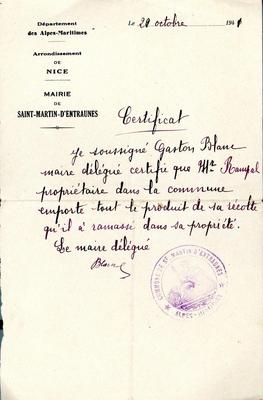 Département
des Alpes-Maritimes
Le 20 octobre 1941
Arrondissement
DE
NICE
MAIRIE
DE
SAINT-MARTIN-D'ENTRAUNES
Certificat
Je soussigné Gaston Blanc
maire délégué certifié que Mr
propriétaire dans la commune
emporte tout le produit de sa récolte
qu'il à ramassé dans sa propriété.
Le maire délégué
Blanc
COMMUNE DE ST MARTIN D'ENTRAUNES
ALPES-MARITIMES